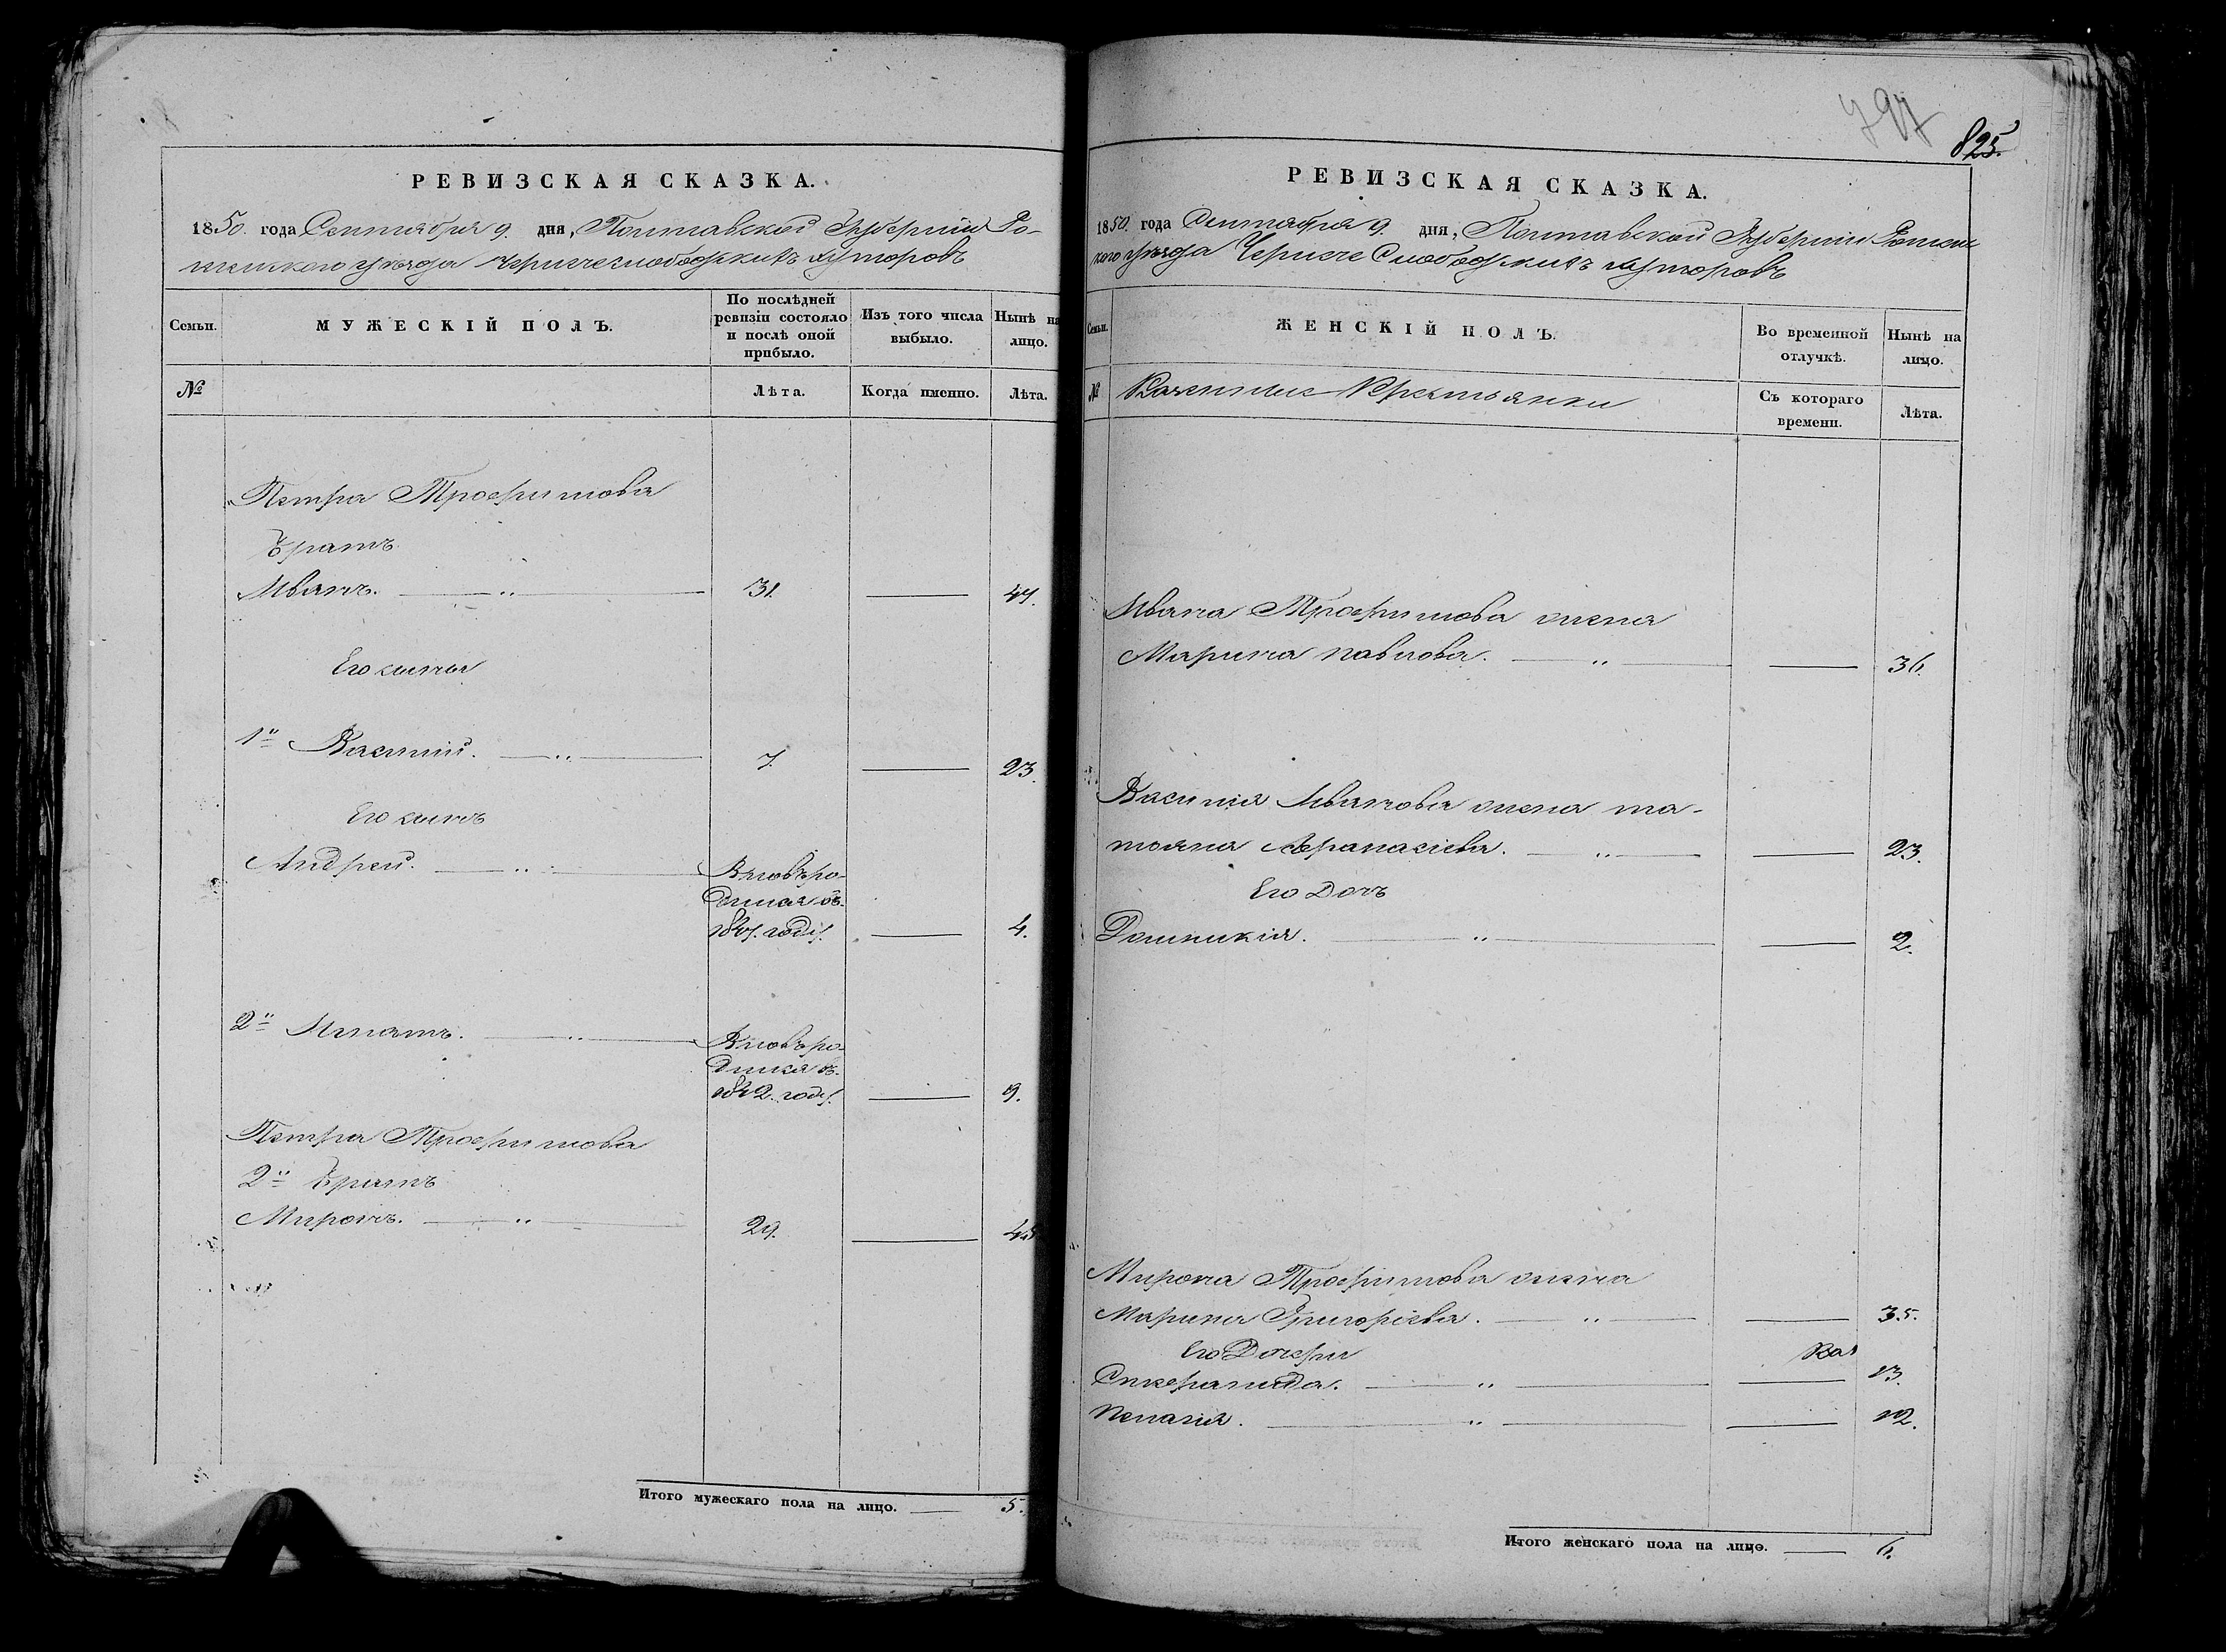 РЕВИЗСКАЯ СКАЗКА.
1850. года Сентября 9. дня, Полтавской Губерніи Ро-
менского уѣзда Чернечеслободскихъ хуторовъ
Семьи.
МУЖЕСКІЙ ПОЛЪ.
По послѣдней ревизіи состояло и послѣ оной прибыло.
Изъ того числа выбыло.
Нынѣ на лицо.
№
Лѣта.
Когда именно.
Лѣта.
Петра Трофимова
Братъ
Иванъ. 31. 47.
Его сыны
1й Василий. 7. 23.
Его сынъ
Андрей.
Вновьро-
дился въ
1847. годѣ. 4.
2й Игнатъ.
Вновьро-
дился въ
1842. годѣ. 9.
Петра Трофимова
2й братъ
Миронъ. 29. 45
Итого мужескаго пола на лицо. 5.
797
825.
РЕВИЗСКАЯ СКАЗКА.
1850. года Сентября 9. дня, Полтавской Губерніи Роменс
кого уѣзда Чернече Слободскихъ хуторовъ
Семьи.
ЖЕНСКІЙ ПОЛЪ.
Во временной отлучкѣ.
Нынѣ на лицо.
№
Казенные Крестьянки
Съ котораго времени.
Лѣта.
Ивана Трофимова жена
Марина павлова. 36.
Василія Иванова жена та-
тояна Афанасіева. 23.
Его Дочъ
Домникія. 2.
Мирона Трофимова жена
Марина Григоріева. 35.
Его Дочери
13.
Пелагія. 12.
Итого женскаго пола на лицо. 6.